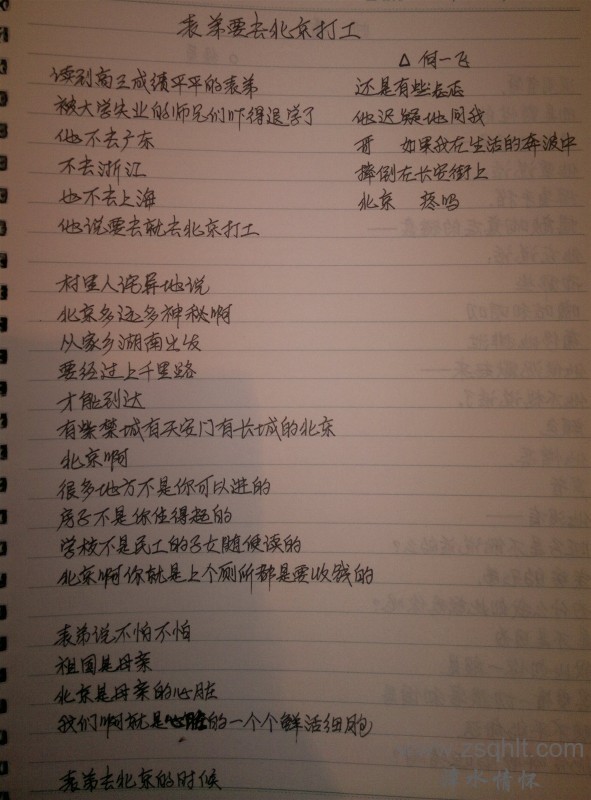 表弟要去北京打工
△ 何一飞
读到高三成绩平平的表弟
被大学失业的师兄们吓得退学了
他不去广东
不去浙江
也不去上海
他说要去就去北京打工
村里人诧异地说
北京多远多神秘啊
从家乡湖南出发
要经过上千里路
才能到达
有紫禁城有天安门有长城的北京
北京啊
很多地方不是你可以进的
房子不是你住得起的
学校不是民工的子女随便读的
北京啊你就是上个厕所都是要收钱的
表弟说不怕不怕
祖国是母亲
北京是母亲的心脏
我们啊就是心脏的一个个鲜活细胞
表弟去北京的时候
还是有些忐忑
他迟疑地问我
哥 如果我在生活的奔波中
摔倒在长安街上
北京 疼吗
www.zsqhlt.com
水情怀